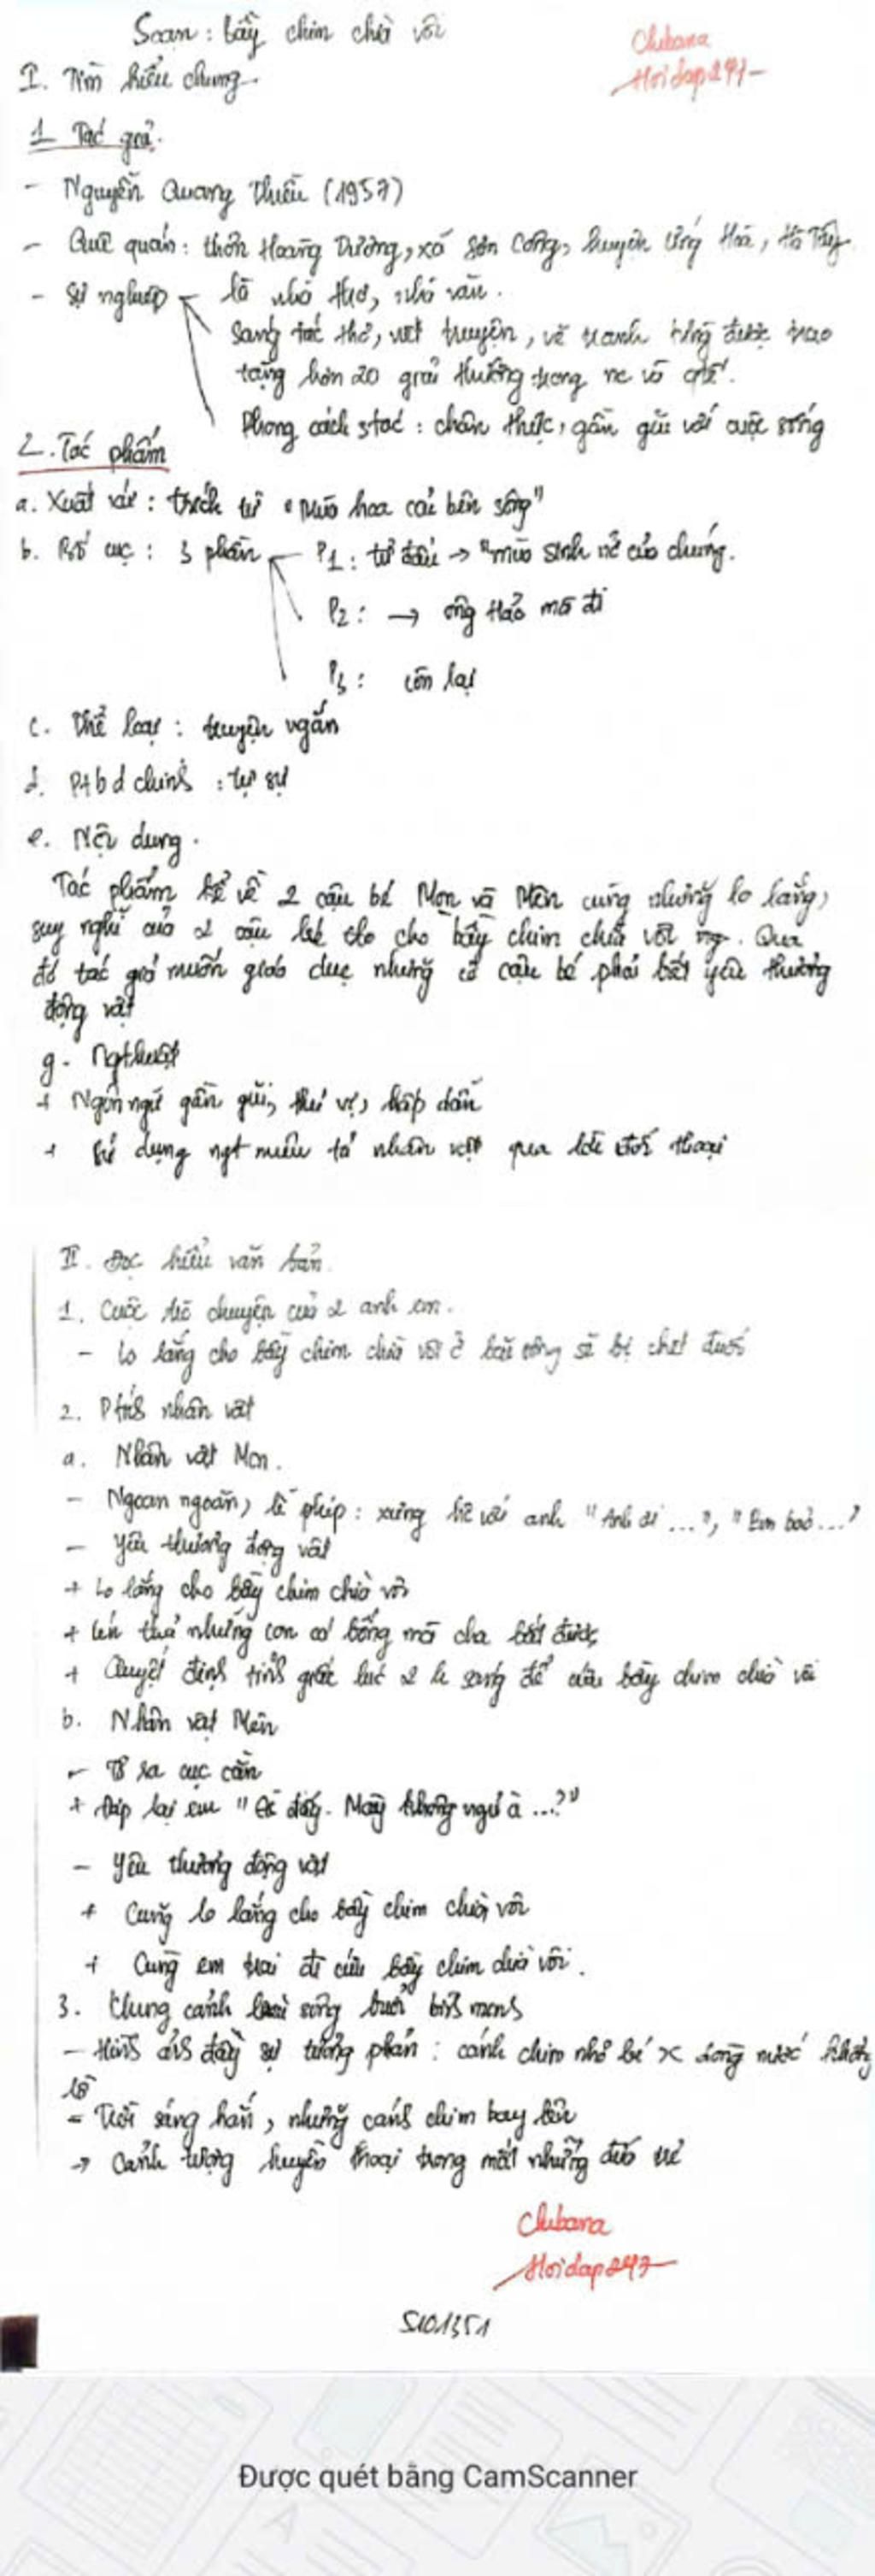 Soạn: bầy chim chìa vôi
Clubana
Hoidap247
I. Tìm hiểu chung
1. Tác giả.
- Nguyễn Quang Thiều (1957)
- Quê quán: thôn Hoàng Dương, xã Sơn Công, huyện Ứng Hòa, Hà Tây
- Sự nghiệp
là nhà thơ, nhà văn.
Sáng tác thơ, viết truyện, vẽ tranh từng được trao
tặng hơn 20 giải thưởng trong nc và qtế.
Phong cách stac: chân thực, gần gũi với cuộc sống
2. Tác phẩm
a. Xuất xứ: trích từ "Mùa hoa cải bên sông"
b. Bố cục: 3 phần
P1: từ đầu → "mùa sinh nở của chúng.
P2: → ông Hảo mà đi
P3: còn lại
c. Thể loại: truyện ngắn
d. Ptbd chính: tự sự
e. Nội dung.
Tác phẩm kể về 2 cậu bé Mon và Mên cùng những lo lắng,
suy nghĩ của 2 cậu bé cho bầy chim chìa vôi. Qua
đó tác giả muốn giáo dục những cô cậu bé phải biết yêu thương
động vật
g. Ngthuật
+ Ngôn ngữ gần gũi, thú vị, hấp dẫn
+ Sử dụng ngt miêu tả nhân vật qua lời đối thoại
II. Đọc hiểu văn bản.
1. Cuộc trò chuyện của 2 anh em.
- Lo lắng cho bầy chim chìa vôi ở bãi sông sẽ bị chết đuối
2. Ptích nhân vật
a. Nhân vật Mon.
- Ngoan ngoãn, lễ phép: xưng hô với anh "Anh ơi ...", "Em bảo ..."
- Yêu thương động vật
+ Lo lắng cho bầy chim chìa vôi
+ Lén thả những con cá bống mà cha bắt được
+ Quyết định tỉnh giấc lúc 2 h sáng để cứu bầy chim chìa vôi
b. Nhân vật Mên
- Tỏ ra cục cằn
+ Đáp lại em "Gì đấy. Mày không ngủ à ...?"
- Yêu thương động vật
+ Cũng lo lắng cho bầy chim chìa vôi
+ Cùng em trai đi cứu bầy chim chìa vôi.
3. Khung cảnh sông buổi bình minh
- Hình ảnh đầy sự tương phản: cánh chim nhỏ bé x dòng nước khổng
lồ
- Trời sáng hẳn, những cánh chim bay lên
→ Cảnh tượng huyền thoại trong mắt những đứa trẻ
Clubana
Hoidap247
5101351
Được quét bằng CamScanner